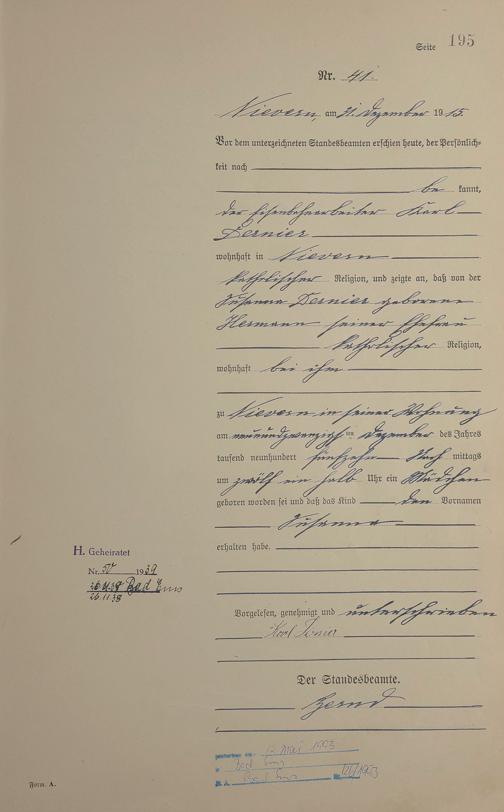 Seite 195
Nr. 41.
Nievern, am 31. Dezember 1915.
Vor dem unterzeichneten Standesbeamten erschien heute, der Persönlich-
keit nach
be kannt,
der Eisenbahnarbeiter Karl
Dernier
wohnhaft in Nievern
katholischer Religion, und zeigte an, daß von der
Susanna Dernier geborene
Hermann seiner Ehefrau
katholischer Religion,
wohnhaft bei ihm
zu Nievern in seiner Wohnung
am neunundzwanzigsten Dezember des Jahres
tausend neunhundert fünfzehn Nach mittags
um zwölf ein halb Uhr ein Mädchen
geboren worden sei und daß das Kind den Vornamen
Susanna
erhalten habe.
H. Geheiratet
Nr. 50 1939
Bad Ems
Vorgelesen, genehmigt und unterschrieben
Karl
Der Standesbeamte.
Mai 1993
Bad Ems
Bad Ems /1993
Form. A.